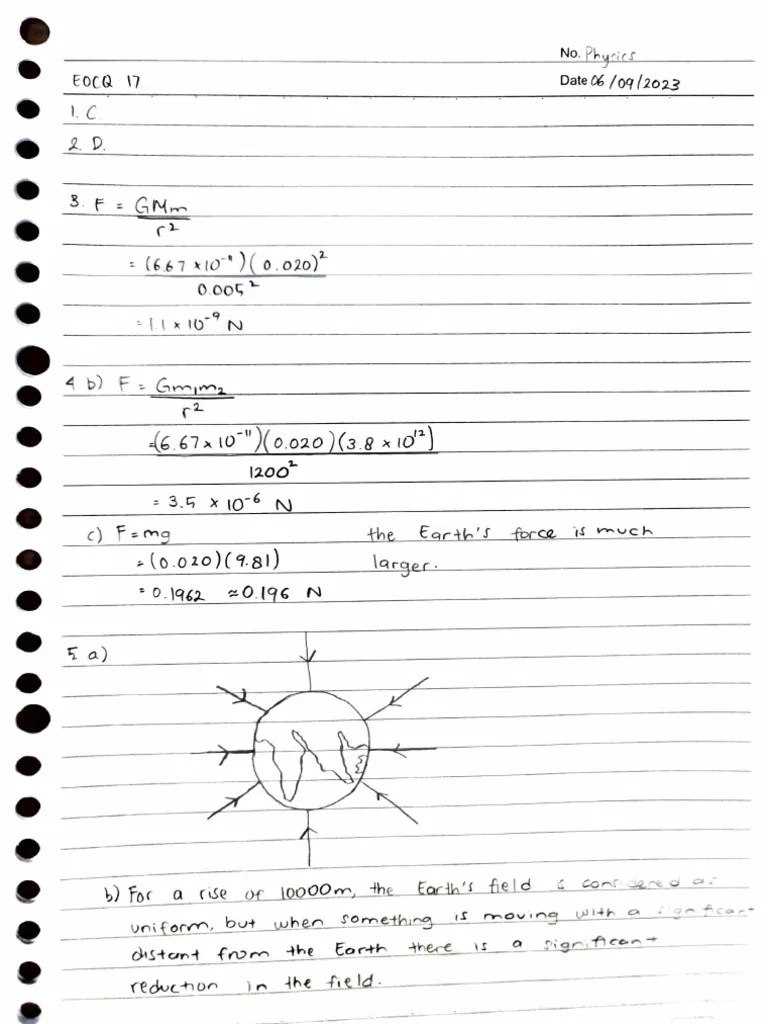 No. Physics
EOCQ 17
Date 06/09/2023
1. C
2. D.
3. F = GMm
r²
= (6.67 × 10⁻¹¹)(0.020)²
0.005²
= 1.1 × 10⁻⁹ N
4 b) F = Gm₁m₂
r²
= (6.67 × 10⁻¹¹)(0.020)(3.8 × 10¹²)
1200²
= 3.5 × 10⁻⁶ N
c) F = mg the Earth's force is much
= (0.020)(9.81) larger.
= 0.1962 ≈ 0.196 N
5 a)
b) For a rise of 10000m, the Earth's field is considered as
uniform, but when something is moving with a significant
distant from the Earth there is a significant
reduction in the field.